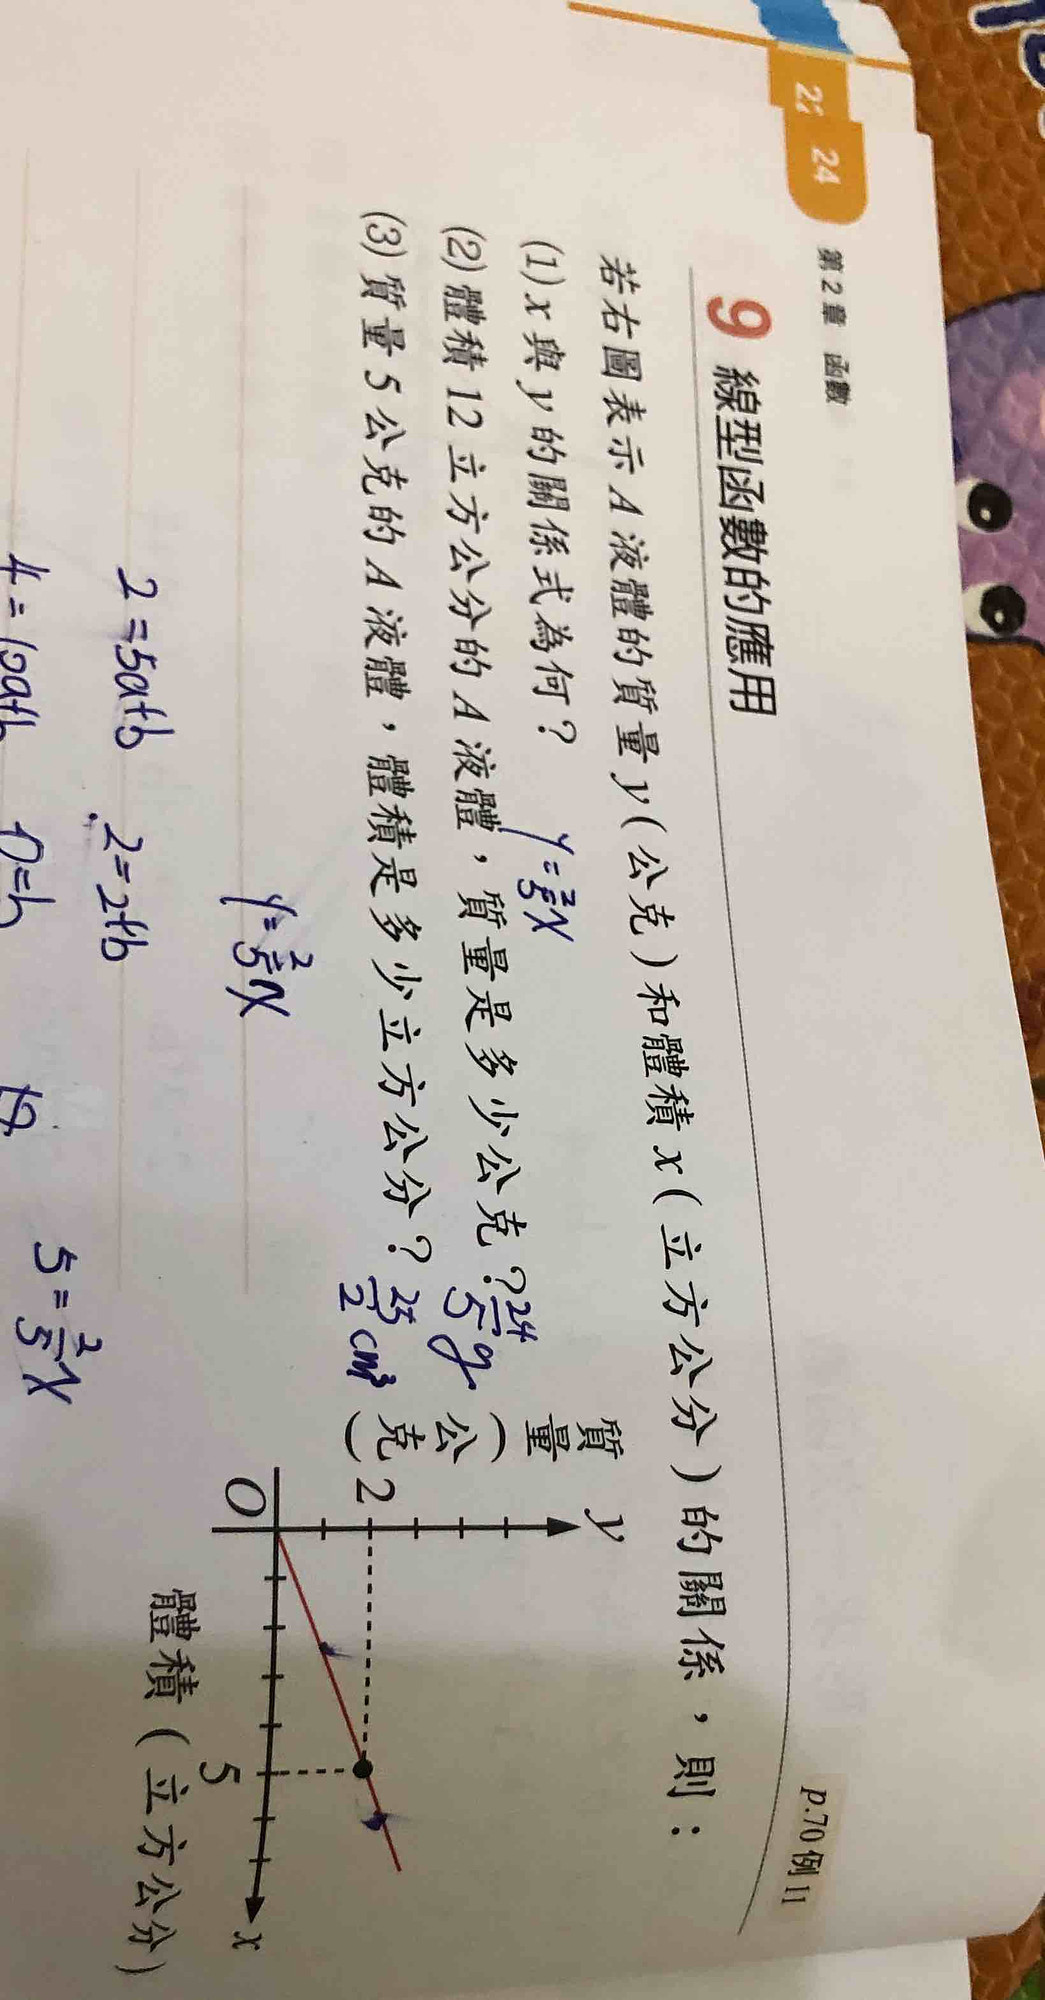 24
第2章 函數
9 線型函數的應用
p.70 例 11
若右圖表示 A 液體的質量 y(公克)和體積 x(立方公分)的關係，則：
(1) x 與 y 的關係式為何？ y=2/5x
(2) 體積 12 立方公分的 A 液體，質量是多少公克？ 24/5 g
(3) 質量 5 公克的 A 液體，體積是多少立方公分？ 25/2 cm³
y
質量(公克)
2
O
5
x
體積(立方公分)
y=2/5x
2=5a+b
2=2+b
4=10a+b
0=b
5=2/5x